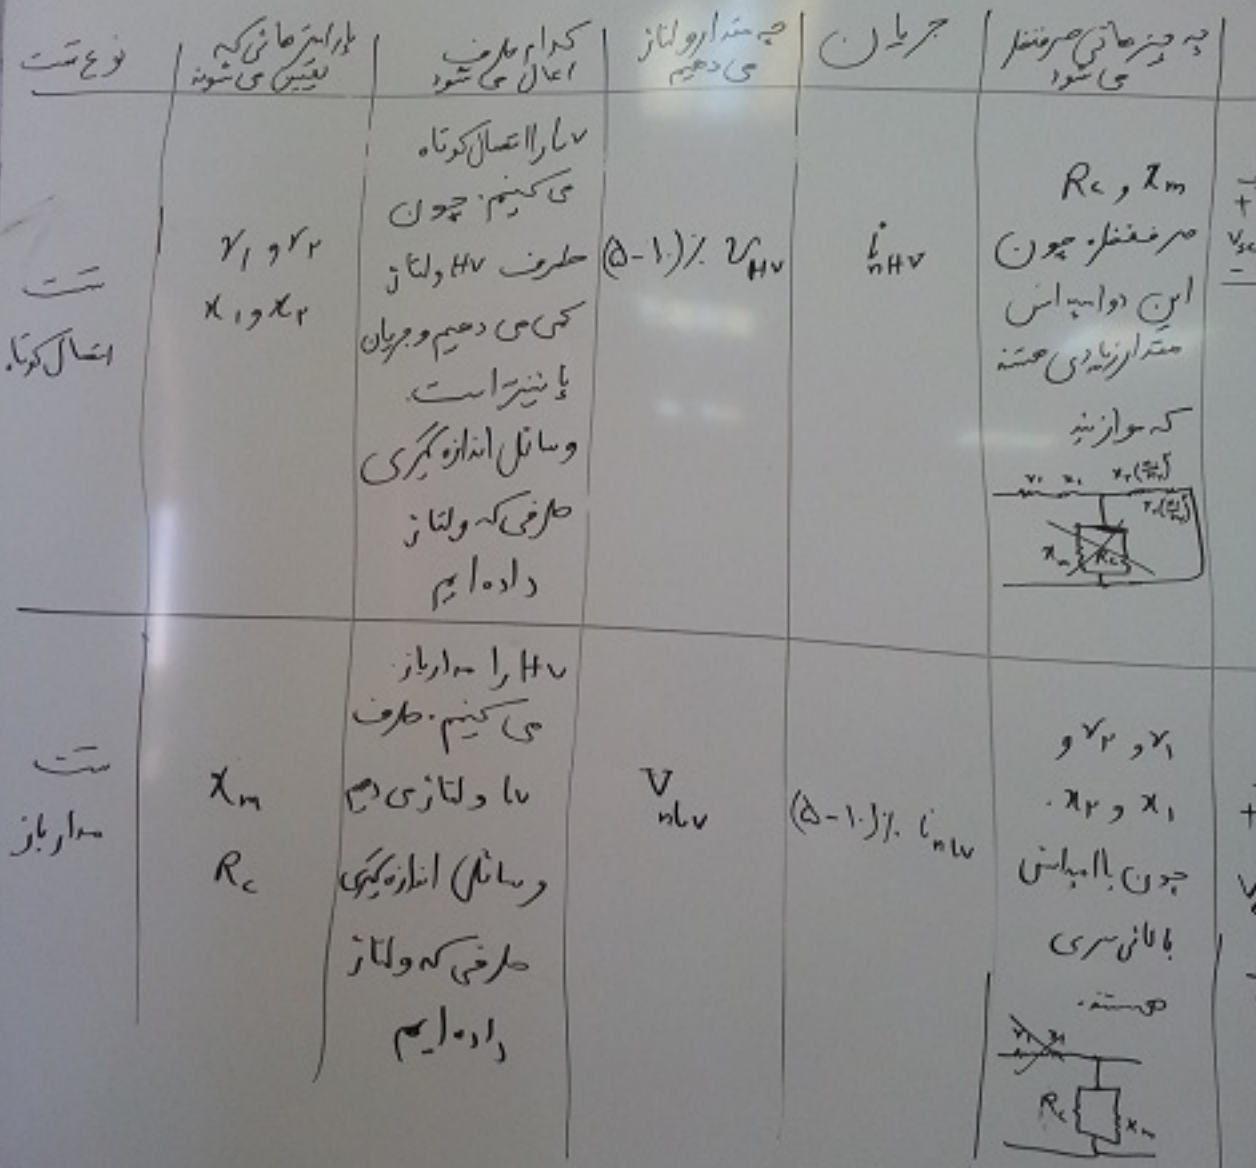 نوع تست
پارامترهائی که
تعیین می شوند
کدام طرف
اعمال می شود
چه مقدار ولتاژ
می دهیم
جریان
چه چیزهائی صرفنظر
می شود
تست
اتصال کوتاه
r₁ و r₂
x₁ و x₂
Lv را اتصال کوتاه
می کنیم. چون
طرف Hv ولتاژ
کمی می دهیم و جریان
پائینتر است.
وسائل اندازه گیری
طرفی که ولتاژ
داده ایم
(۵-۱۰)٪ V_Hv
i_nHv
Rc و Xm
صرفنظره چون
این دو امپدانس
مقدار زیادی هستند
که موازیند
r₁ x₁
Xm Rc
+
Vsc
-
تست
مدار باز
Xm
Rc
Hv را مدار باز
می کنیم. طرف
Lv ولتاژ می دهیم
وسائل اندازه گیری
طرفی که ولتاژ
داده ایم
V_nLv
(۵-۱۰)٪ i_nLv
r₁ و r₂ و
x₁ و x₂.
چون با امپدانس
بالائی سری
هستند.
r₁ x₁
Rc Xm
+